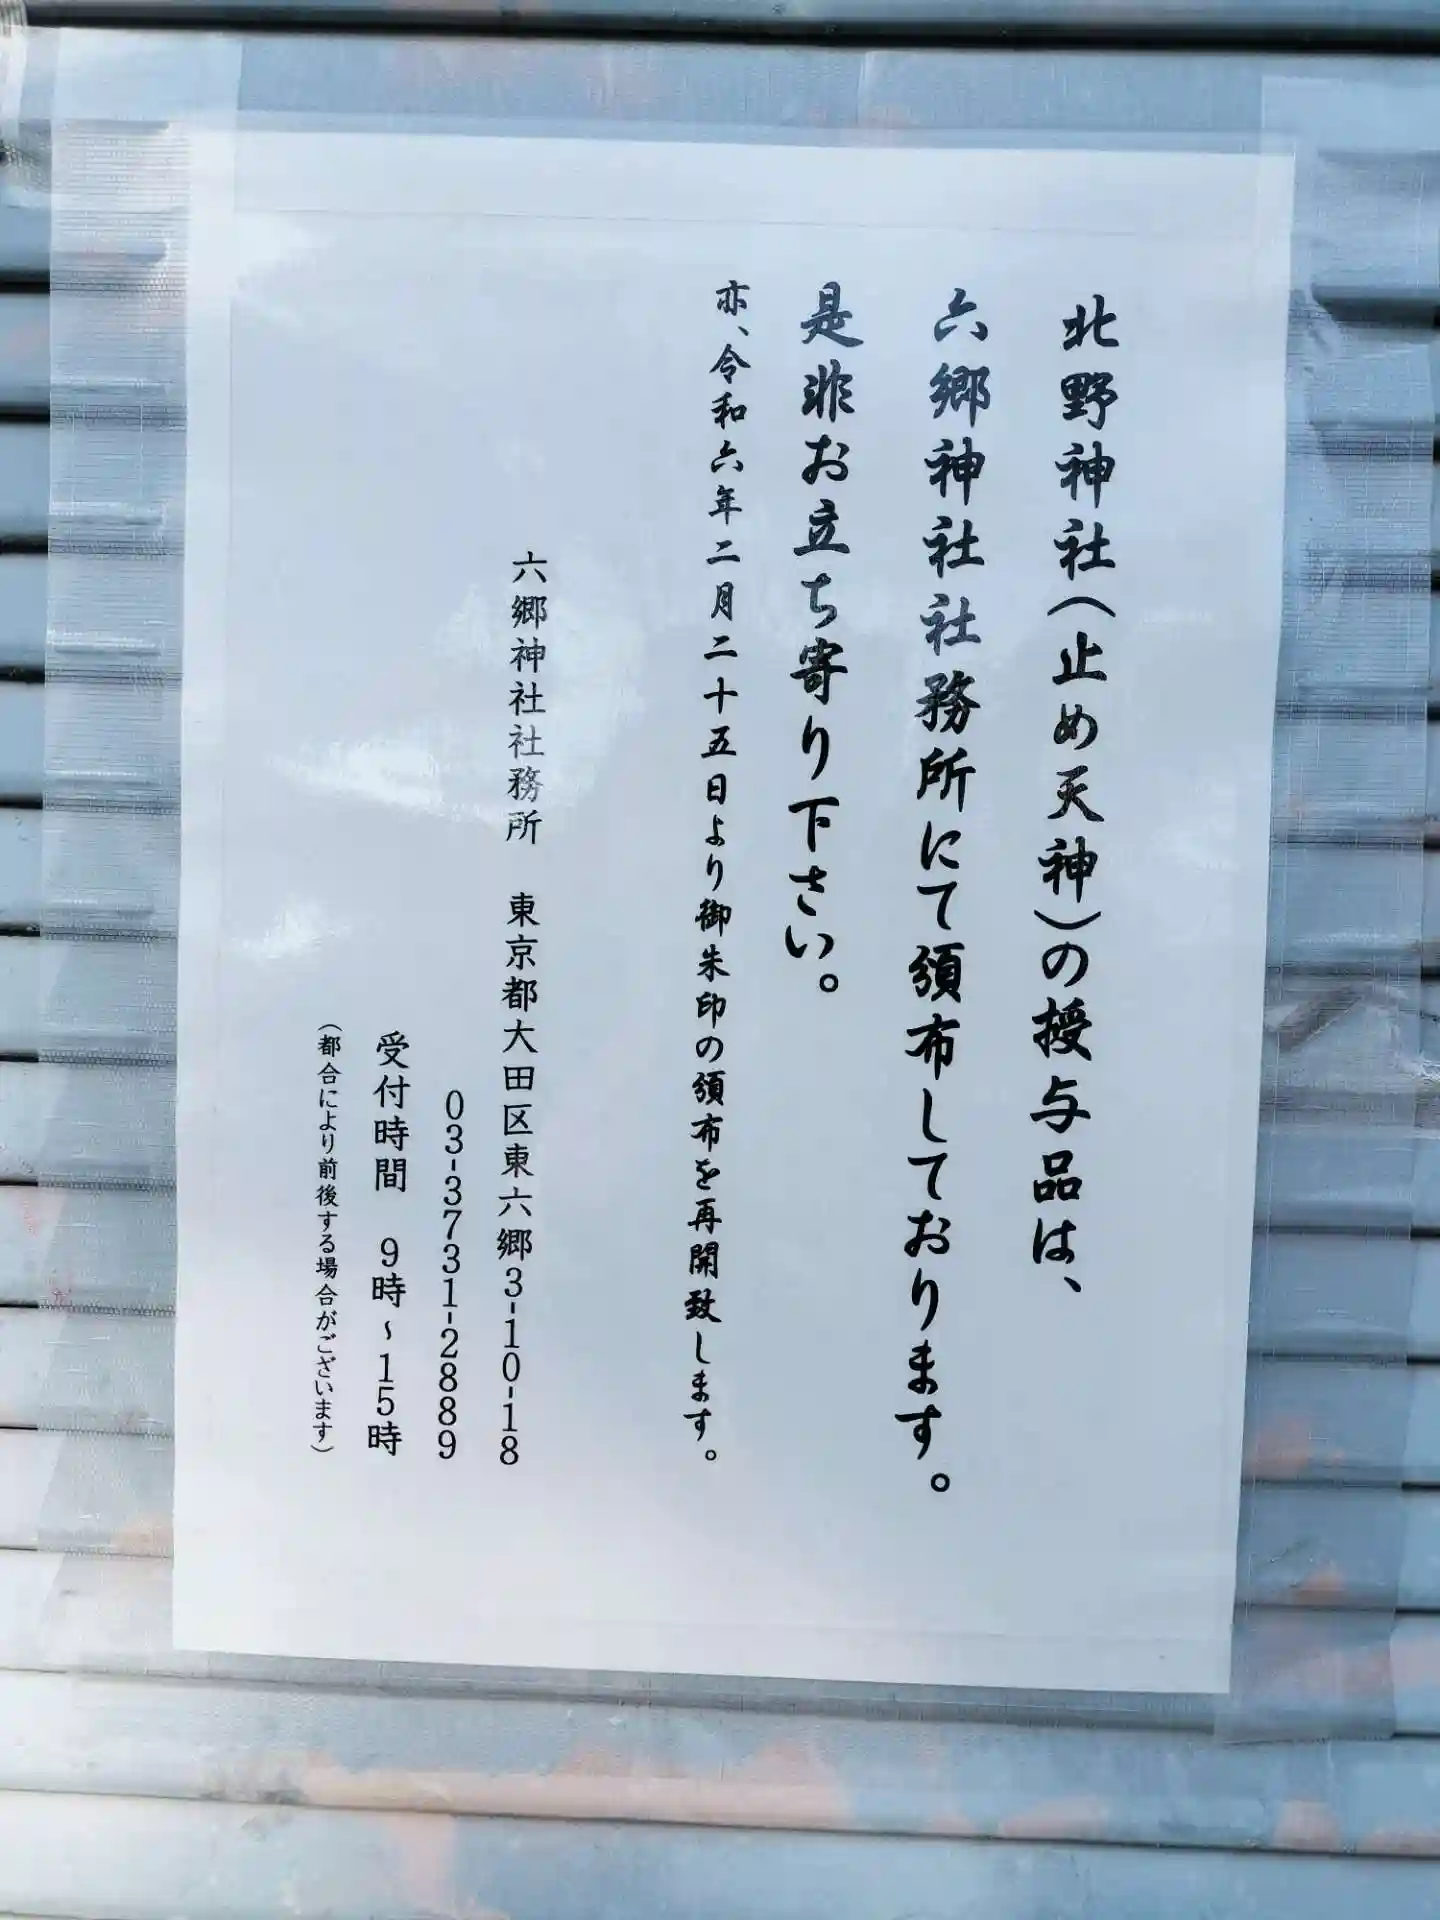 北野神社(止め天神)の授与品は、
六郷神社社務所にて頒布しております。
是非お立ち寄り下さい。
亦、令和六年二月二十五日より御朱印の頒布を再開致します。
六郷神社社務所　東京都大田区東六郷3-10-18
03-3731-2889
受付時間　9時～15時
(都合により前後する場合がございます)